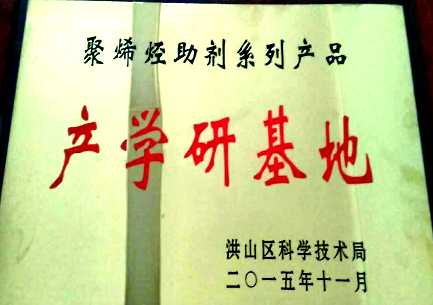 聚烯烃助剂系列产品
产学研基地
洪山区科学技术局
二〇一五年十一月